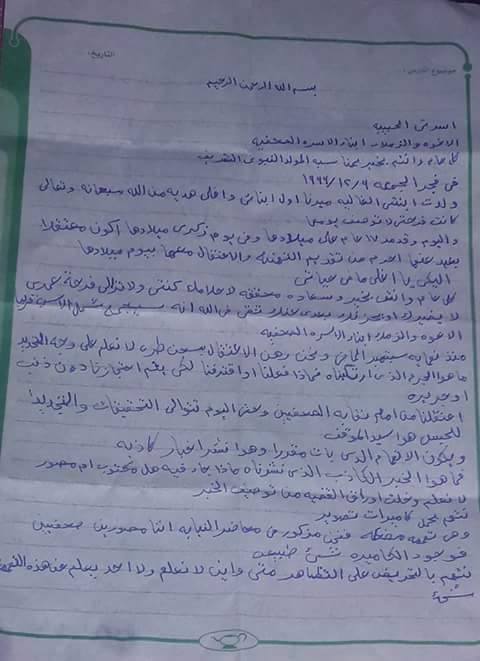 التاريخ:
موضوع الدرس:
بسم الله الرحمن الرحيم
اسرتى الحبيبه
الاخوه والزملاء ابناء الاسره الصحفيه
كل عام وانتم بخير بمناسبه المولد النبوى الشريف
فى فجر الجمعه ٦/ ١٢/ ١٩٩٦
ولدت ابنتى الغاليه ميرنا اول ابنائى واغلى هديه من الله سبحانه وتعالى
كانت فرحتى لا توصف يومها
واليوم وقد مر ١٧ عام على ميلادها وفى يوم ذكرى ميلادها اكون معتقلا
بعيد عنها احرم من تقديم التهنئه والاحتفال معها بيوم ميلادها
اليكى يا اغلى ما فى حياتى
كل عام وانتى بخير وسعاده محققه لاحلامك كنتى ولا تزالى فرحة عمرى
لا يضيرك او يحزنك بعدى عنك ثقتى فى الله انه سيجمع شمل الاسره قريبا
الاخوه والزملاء ابناء الاسره الصحفيه
منذ نهايه سبتمبر الماضى ونحن رهن الاعتقال بسجن طره لا نعلم على وجه التحديد
ما هو الجرم الذى ارتكبناه فماذا فعلنا او اقترفنا لكى يتم احتجازنا دون ذنب
او جريره
اعتقلنا من امام نقابه الصحفيين وحتى اليوم تتوالى التحقيقات والتجديد
للحبس هو سيد الموقف
ويكون الاتهام الذى بات مقررا وهو نشر اخبار كاذبه
فما هو الخبر الكاذب الذى نشرناه ماذا جاء فيه هل مكتوب ام مصور
لا نعلم وخلت اوراق القضيه من توصيف الخبر
نتهم بحمل كاميرات تصوير
وهى تهمه مضحكه فنحن مذكور فى محاضر النيابه اننا مصورين صحفيين
فوجود الكاميره شئ طبيعى
نتهم بالتحريض على التظاهر متى واين لا نعلم ولا احد يعلم عن هذه التهمه
شئ